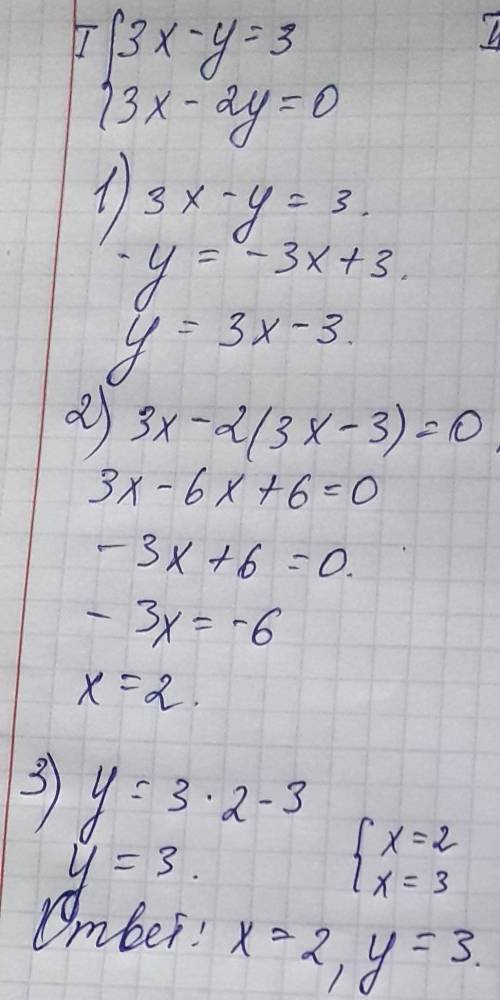 I { 3x - y = 3
{ 3x - 2y = 0
1) 3x - y = 3.
-y = -3x + 3.
y = 3x - 3.
2) 3x - 2(3x - 3) = 0,
3x - 6x + 6 = 0
- 3x + 6 = 0.
- 3x = -6
x = 2.
3) y = 3 · 2 - 3
y = 3.
{ x = 2
{ x = 3
Ответ: x = 2, y = 3.